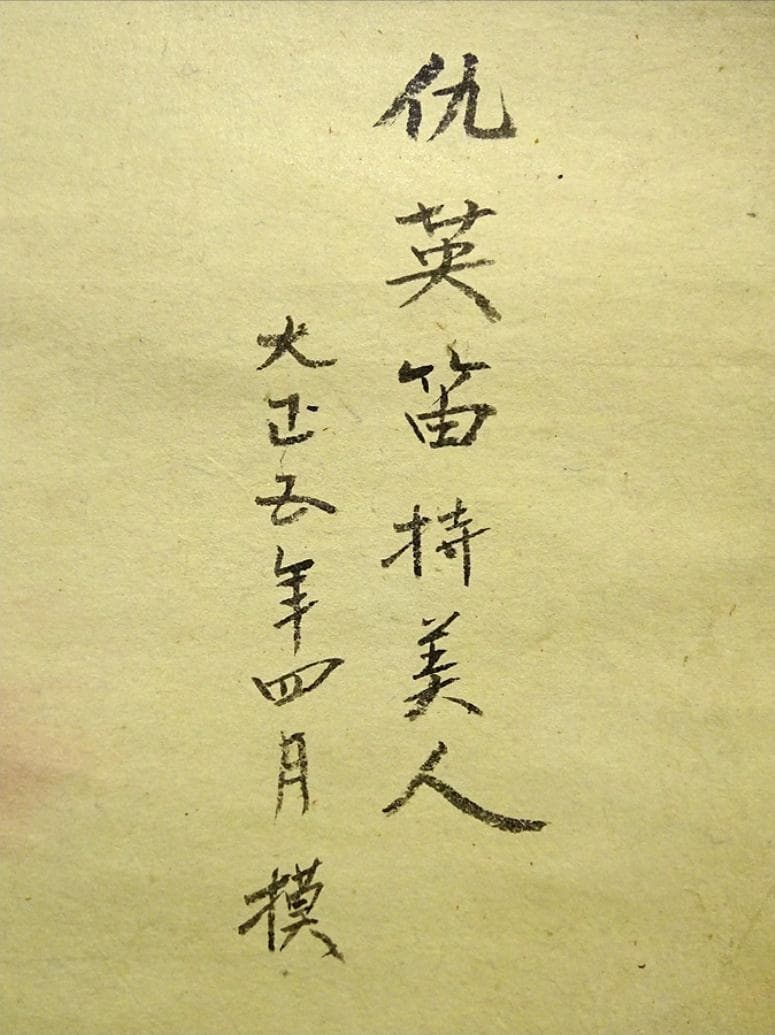 仇英笛持美人
大正五年四月模